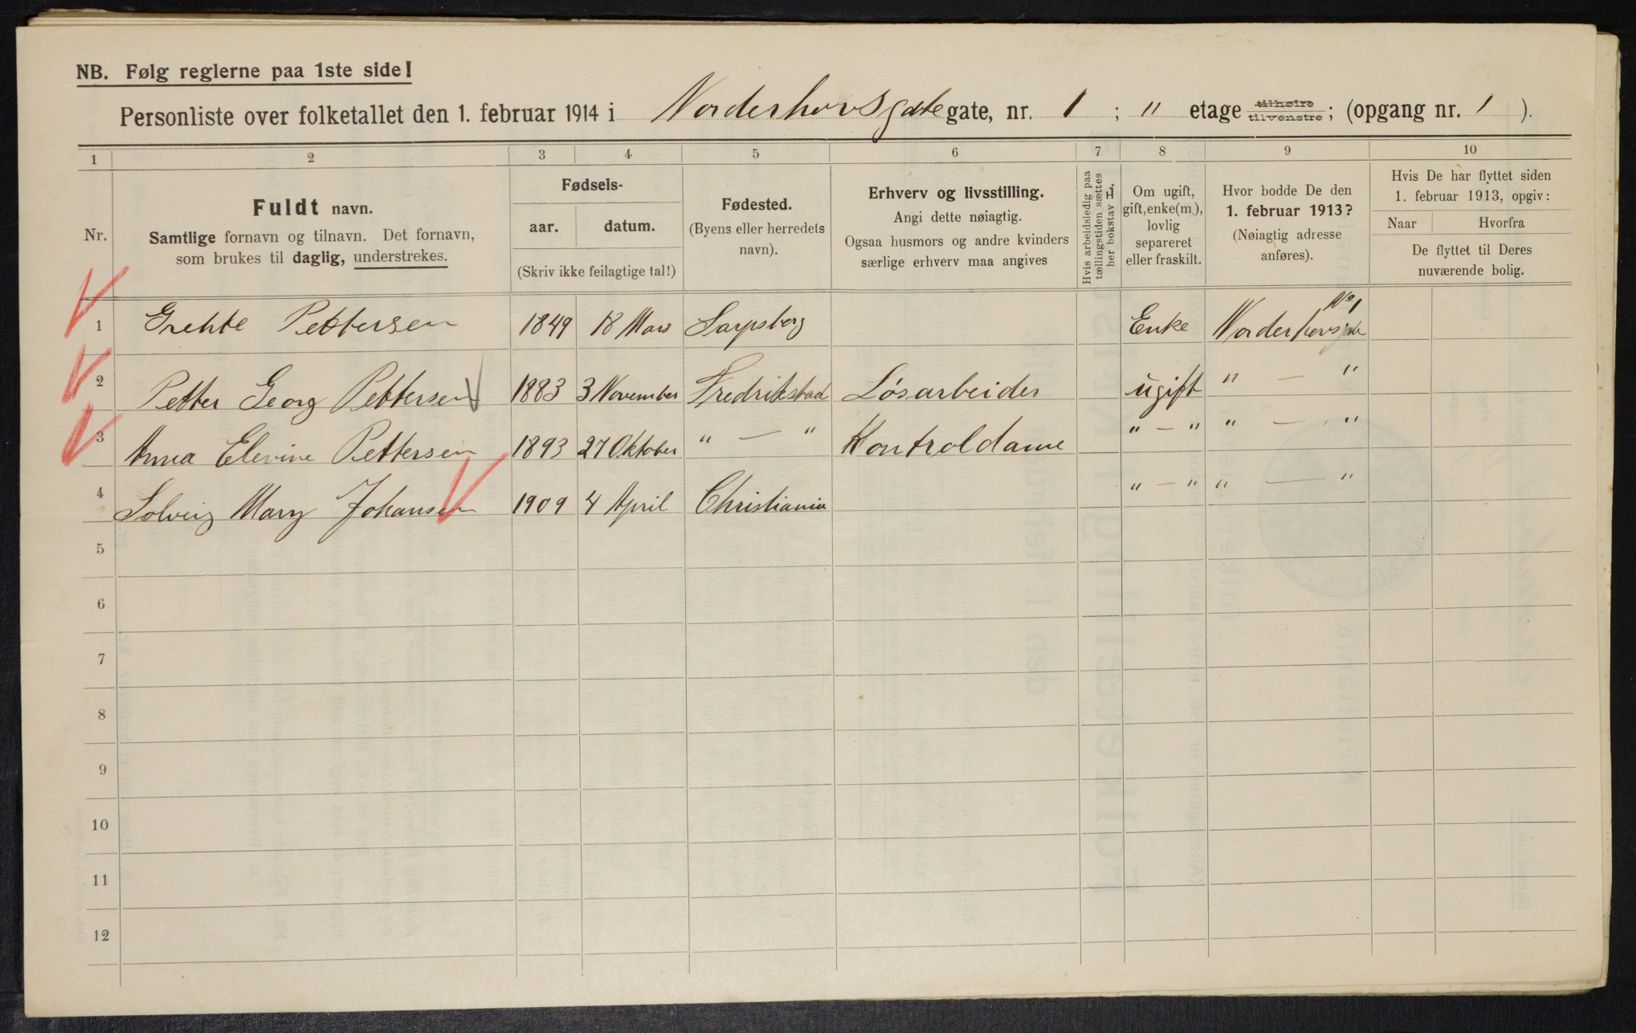 NB. Følg reglerne paa 1ste side!
Personliste over folketallet den 1. februar 1914 i Norderhovsgate gate, nr. 1 ; " etage tilhøire tilvenstre ; (opgang nr. 1 ).
1 2 3 4 5 6 7 8 9 10
Nr.
Fuldt navn.
Samtlige fornavn og tilnavn. Det fornavn,
som brukes til daglig, understrekes.
Fødsels-
aar. datum.
(Skriv ikke feilagtige tal!)
Fødested.
(Byens eller herredets
navn).
Erhverv og livsstilling.
Angi dette nøiagtig.
Ogsaa husmors og andre kvinders
særlige erhverv maa angives
Hvis arbeidsledig paa
tællingstiden sættes
her bokstav L.
Om ugift,
gift, enke(m.),
lovlig
separeret
eller fraskilt.
Hvor bodde De den
1. februar 1913?
(Nøiagtig adresse
anføres).
Hvis De har flyttet siden
1. februar 1913, opgiv:
Naar Hvorfra
De flyttet til Deres
nuværende bolig.
No 1
1 Grehte Pettersen 1849 18 Mars Sarpsborg Enke Norderhovsgate
2 Petter Georg Pettersen 1883 3 November Fredrikstad Løsarbeider ugift " — "
3 Anna Elevine Pettersen 1893 27 Oktober " — " Kontroldame " — " " — "
4 Solveig Mary Johansen 1909 4 April Christiania " — " " — "
5
6
7
8
9
10
11
12